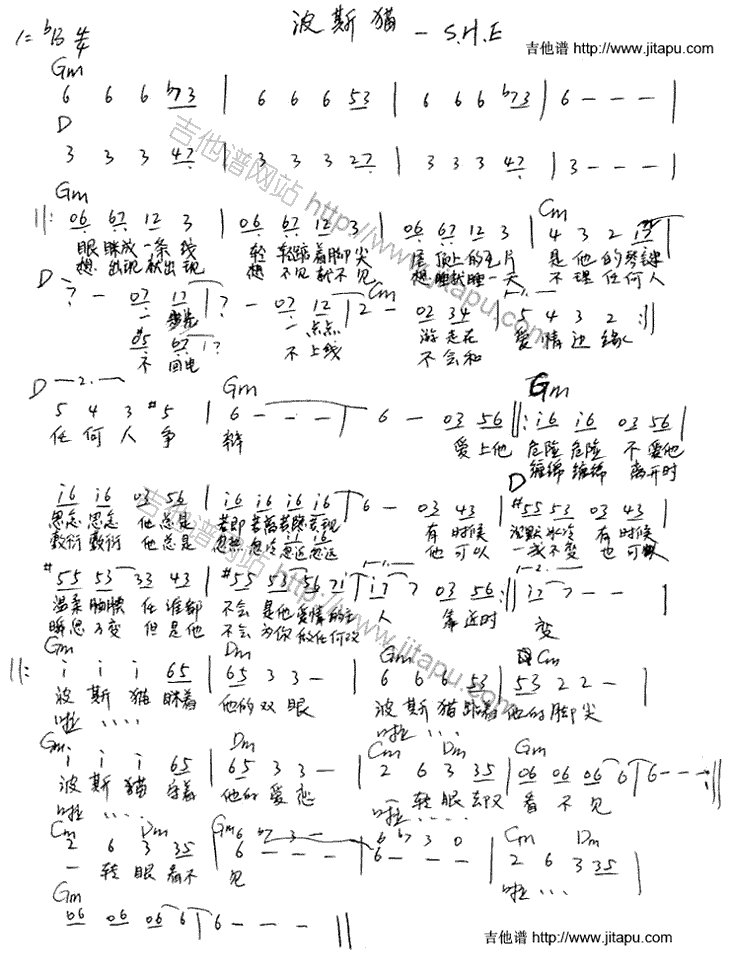 波斯猫 - S.H.E
吉他谱 http://www.jitapu.com
1=bB 4/4
Gm
6 6 6 b73 | 6 6 6 53 | 6 6 6 b73 | 6 - - - |
D
3 3 3 47 | 3 3 3 27 | 3 3 3 47 | 3 - - - |
Gm Cm
||: 06 67 12 3 | 06 67 12 3 | 06 67 12 3 | 4 3 2
眼睛放一条线 轻轻踮着脚尖 屋顶上的瓦片 是他的琴键
想出现就出现 想不见就不见 想睡就睡一天 不理任何人
D Cm 1.
7 - 07 17 | 7 - 07 12 | 2 - 02 34 | 5 4 3 2 :||
一 点点 游走在 爱情边缘
#5 67 17
不回电 不上线 不会和
D 2. Gm Gm
5 4 3 #5 | 6 - - - | 6 - 03 56 ||: i6 i6 03 56 |
任何人争 辩 爱上他 危险危险 不爱他
缠绵缠绵 离开时
D
i6 i6 03 56 | i6 i6 i6 i6 | 6 - 03 43 | #55 53 03 43 |
思念思念 他总是 若即若离若隐若现 有时候 沉默冰冷 有时候
敷衍敷衍 他总是 忽热忽冷忽近忽远 他可以 一成不变 也可以
#55 53 33 43 | #55 53 56 7i | i7 7 03 56 :|| i7 7 - - |
温柔腼腆 任谁都 不会是他爱情的主 人 靠近时 变
瞬息万变 但是他 不会为你做任何改
Gm Gm Cm
||: i i i 65 | 65 3 3 - | 6 6 6 53 | 53 2 2 - |
波斯猫眯着 他的双眼 波斯猫踮着 他的脚尖
啦 .... 啦 ....
Gm Dm Cm Dm Gm
i i i 65 | 65 3 3 - | 2 6 3 35 | 06 06 06 6 | 6 - - - :||
波斯猫守着 他的爱恋 一转眼却又 看不见
啦 .... 啦 ....
Cm Dm Gm Cm Dm
2 6 3 35 | 6 - - - | 6 - - - | 2 6 3 35 |
6 b7 3 - 6 b7 3 0
一转眼看不 见 啦 ...
Gm
06 06 06 6 | 6 - - - ||
吉他谱 http://www.jitapu.com
吉他谱网站 http://www.jitapu.com
吉他谱网站 http://www.jitapu.com